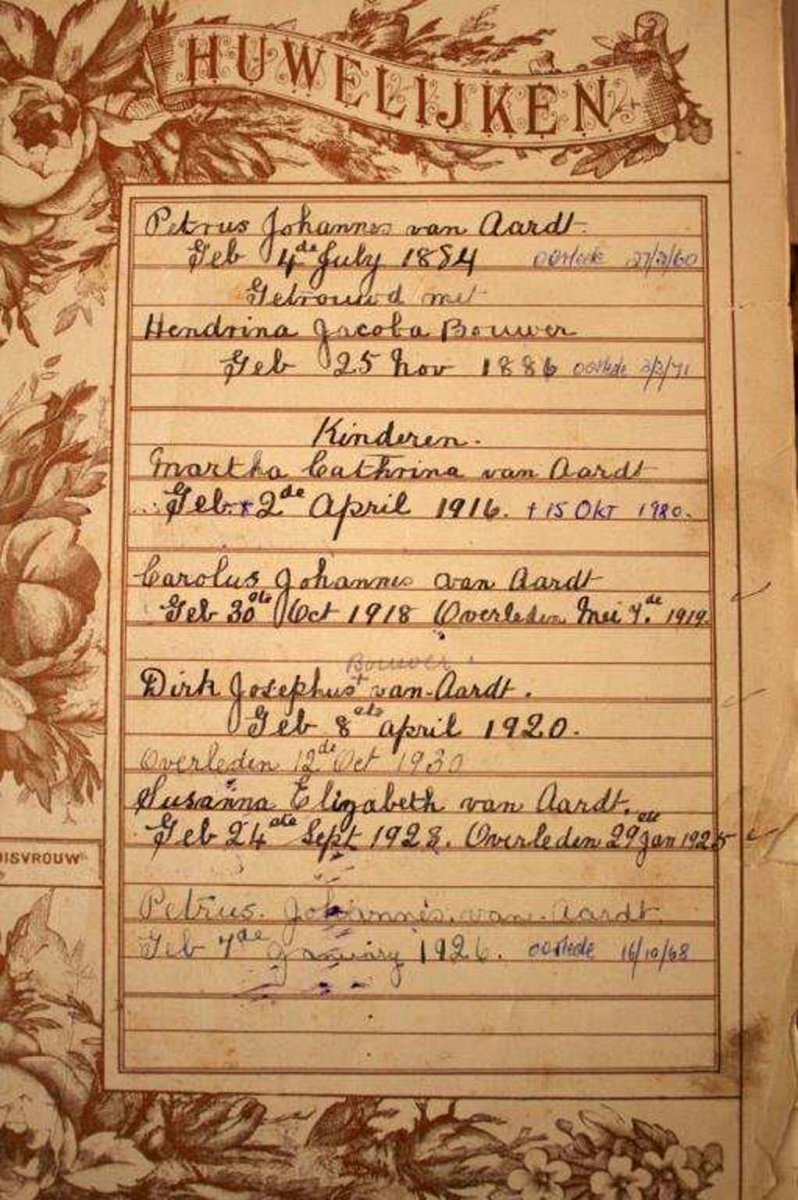 HUWELIJKEN
Petrus Johannes van Aardt.
Geb 4de July 1884 oorlede 27/2/60
Getrouwd met
Hendrina Jacoba Bouwer
Geb 25 Nov 1886 oorlede 3/3/71
Kinderen.
Martha Cathrina van Aardt
Geb. 2de April 1916. † 15 OKT 1980.
Carolus Johannes van Aardt
Geb 30ste Oct 1918 Overleden Mei 7.de 1919.
Bouwer
Dirk Josephus + van Aardt.
Geb 8ste April 1920.
Overleden 12de Oct 1930
Susanna Elizabeth van Aardt.
Geb 24ste Sept 1923. Overleden 29ste Jan 1925
ISVROUW
Petrus. Johannes. van. Aardt.
Geb 7de January 1926. oorlede 16/10/68